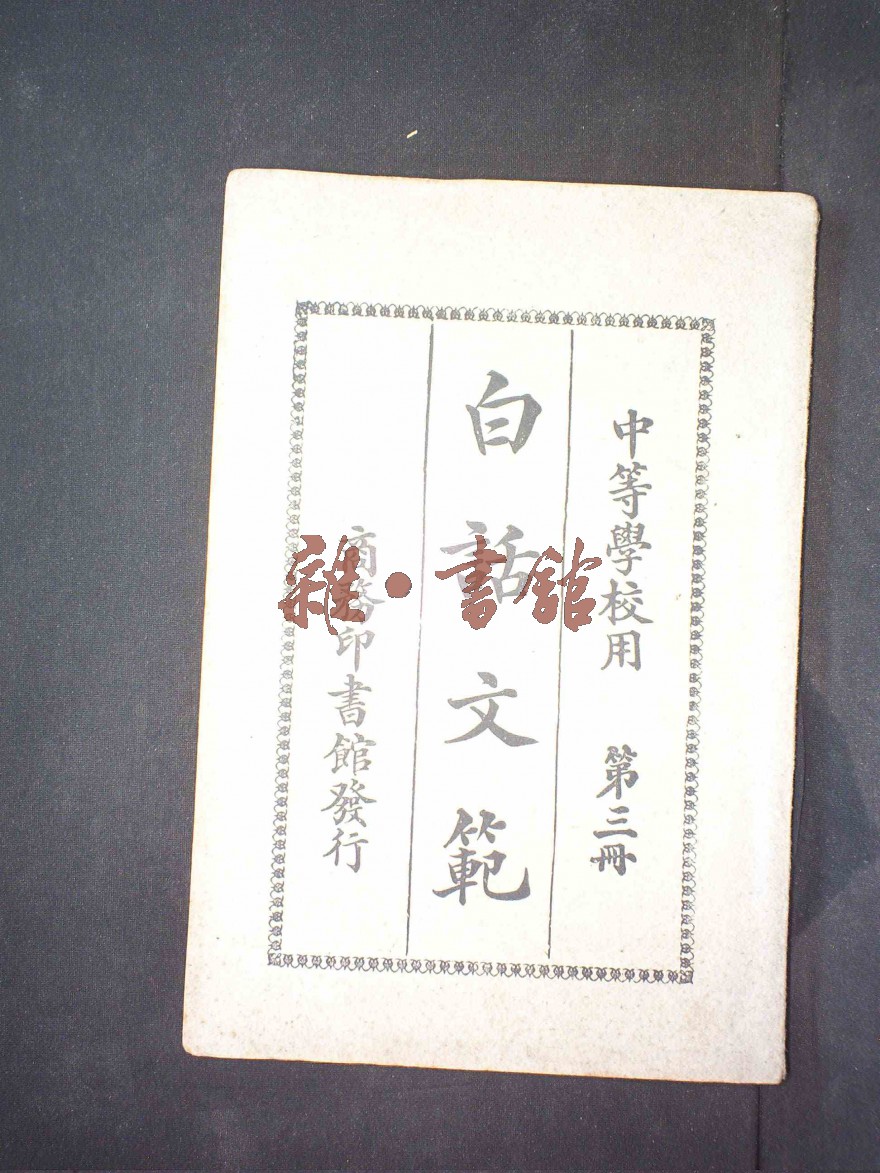 中等學校用 第三冊
白話文範
商務印書館發行
雜·書館